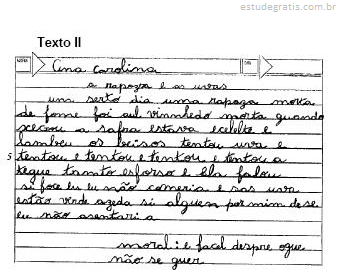 estudegratis.com.br
Texto II
NOME Ana Carolina
a rapoza e as uvas
um serto dia uma rapoza morta
de fome foi aul vinnhedo morta quando
xeciou a safra estava ecelelte e
lambeu os beisos tentou uva e
5 tentou e tentou e tentou e tentou a
xegue tamto esforso e Ela falou
si foce eu eu não comeria e sas uva
estão verde azeda si alguem por mim dese
eu não asentari a
moral: e facel despre ogue
não se quer